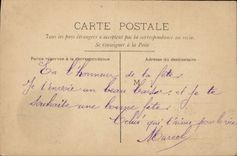 CARTE POSTALE
Tous les pays étrangers n'acceptent pas la correspondance au recto.
Se renseigner à la Poste
Partie réservée à la correspondance
Adresse du destinataire
En l'honneur de ta fête
Je t'envoie un beau baiser et je te
M
souhaite une bonne fête.
Celui qui t'aime pour la vie
Marcel